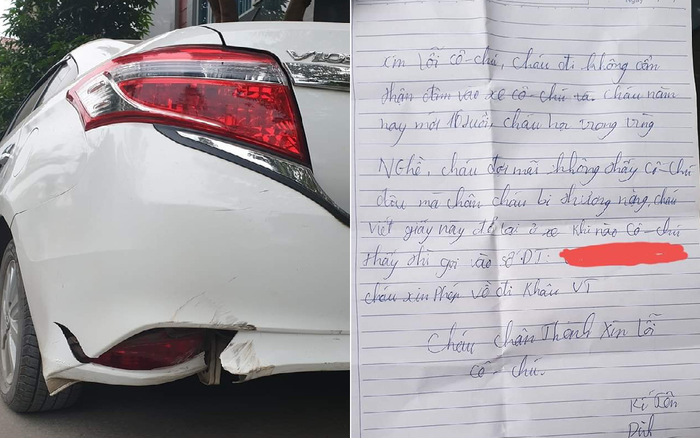 VIO
xin lỗi cô-chú, cháu đi không cẩn
thận đâm vào xe cô-chú và cháu năm
nay mới 16 tuổi. cháu học trong trường
NGHỀ, cháu đợi mãi không thấy cô-chú
đâu mà chân cháu bị thương nặng, cháu
viết giấy này để lại ở xe khi nào cô-chú
thấy thì gọi vào số ĐT:
cháu xin phép về đi khâu VT
Cháu chân Thành xin lỗi
cô-chú.
Kí Tên